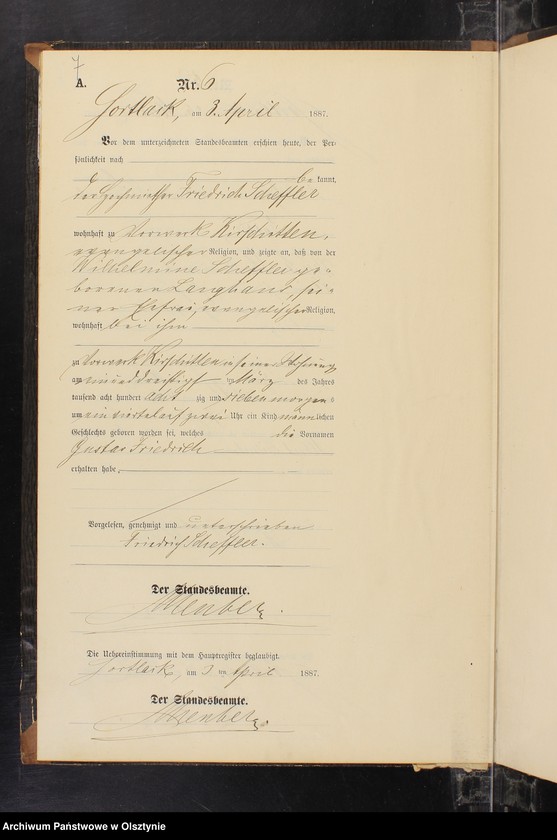 7
A.
Nr. 6
Gortlack, am 3. April 1887.
Vor dem unterzeichneten Standesbeamten erschien heute, der Per-
sönlichkeit nach
be kannt,
der Friedrich Scheffler
wohnhaft zu Vorwerk Kirschitten,
evangelischer Religion, und zeigte an, daß von der
Wilhelmine Scheffler ge-
borenen Langhans, sei-
ner Ehefrau, evangelischer Religion,
wohnhaft bei ihm
zu Vorwerk Kirschitten in seiner Wohnung
am einunddreißigst ten März des Jahres
tausend acht hundert acht zig und sieben morgens
um ein viertel auf zwei Uhr ein Kind männlichen
Geschlechts geboren worden sei, welches die Vornamen
Gustav Friedrich
erhalten habe.
Vorgelesen, genehmigt und unterschrieben
Friedrich Scheffler.
Der Standesbeamte.
Die Uebereinstimmung mit dem Hauptregister beglaubigt.
Gortlack, am 3 ten April 1887.
Der Standesbeamte.
Archiwum Państwowe w Olsztynie